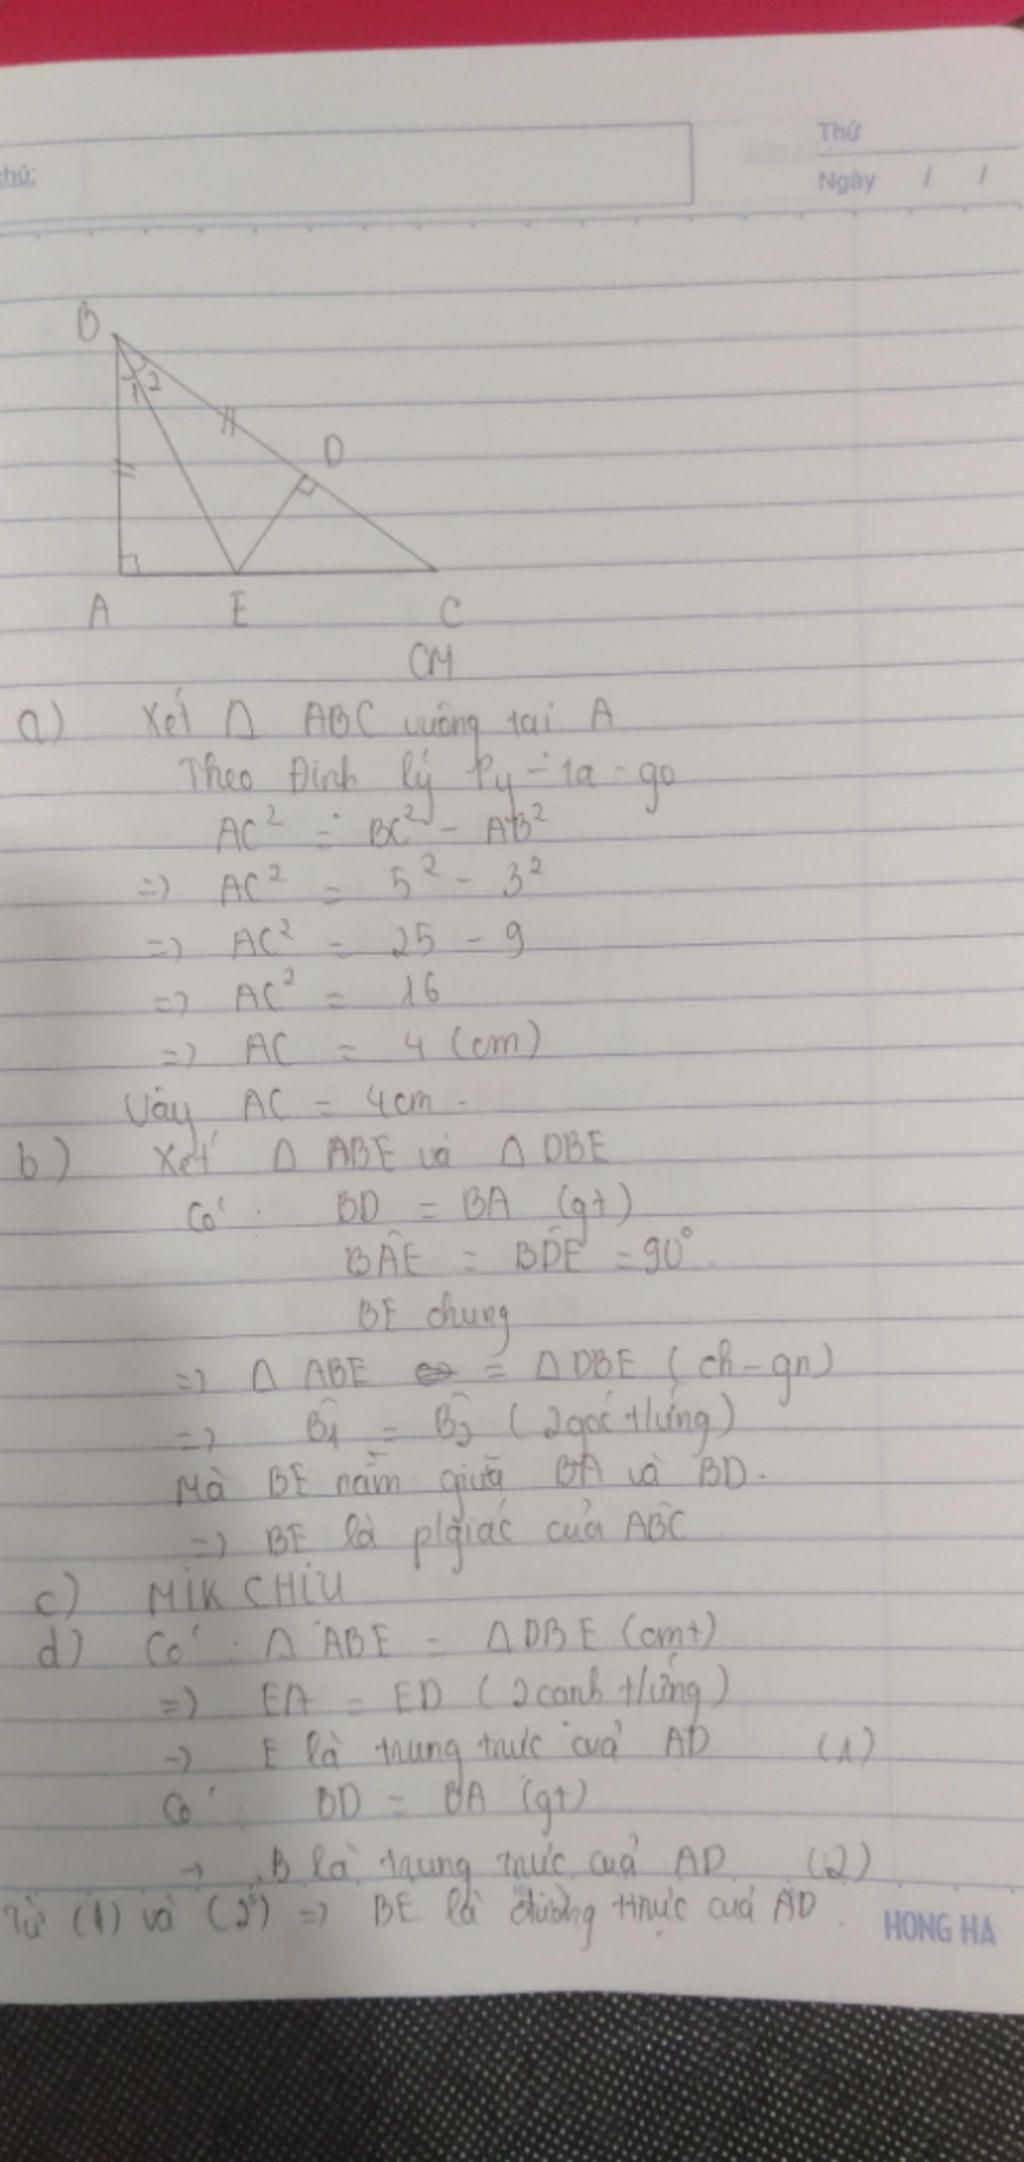 Thứ
Ngày / /
chú:
B
1 2
D
A E C
CM
a) Xét Δ ABC vuông tại A
Theo Định lý Py-ta-go
AC² = BC² - AB²
=> AC² = 5² - 3²
=> AC² = 25 - 9
=> AC² = 16
=> AC = 4 (cm)
Vậy AC = 4cm.
b) Xét Δ ABE và Δ DBE
Có: BD = BA (gt)
BÂE = BD̂E = 90°
BE chung
=> Δ ABE = Δ DBE (ch-gn)
=> B̂1 = B̂2 (2 góc t/ứng)
Mà BE nằm giữa BA và BD.
=> BE là p/giác của ABC
c) MIK CHIU
d) Có: Δ ABE = Δ DBE (cmt)
=> EA = ED (2 cạnh t/ứng)
-> E là trung trực của AD (1)
Có: BD = BA (gt)
-> B là trung trực của AD (2)
Từ (1) và (2) => BE là đường ttrực của AD.
HONG HA